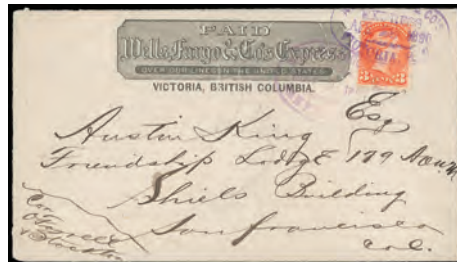 PAID
Wells, Fargo & Co's Express
OVER OUR LINES IN THE UNITED STATES
VICTORIA, BRITISH COLUMBIA.
3 3
Esq
Austin King
Friendship Lodge 179
Shiels Building
San Francisco
Cal.
Cor
O'Farrell
& Stockton